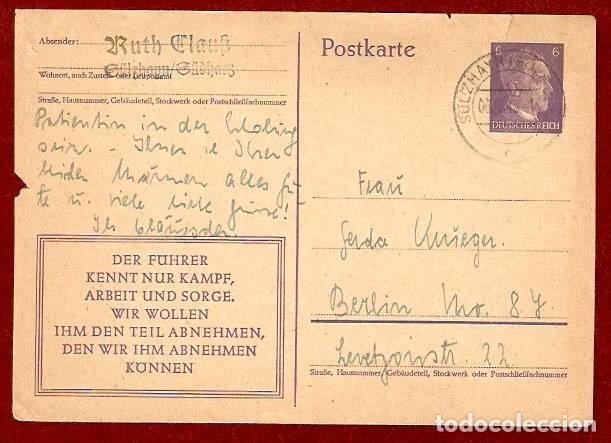 Absender: Ruth Clauß
Sülzhayn/Südharz
Wohnort, auch Zustell- oder Leitpostamt
Straße, Hausnummer, Gebäudeteil, Stockwerk oder Postschließfachnummer
Patientin in der
sein. – Ihnen u. Ihren
beiden Männern alles Gu-
te u. viele liebe Grüsse!
Ihr
DER FÜHRER
KENNT NUR KAMPF,
ARBEIT UND SORGE.
WIR WOLLEN
IHM DEN TEIL ABNEHMEN,
DEN WIR IHM ABNEHMEN
KÖNNEN
Postkarte
6 6
DEUTSCHES REICH
SÜLZHAYN
Frau
Gerda Krueger.
Berlin No. 87
Levetzowstr. 22
Straße, Hausnummer, Gebäudeteil, Stockwerk oder Postschließfachnummer
todocoleccion.net